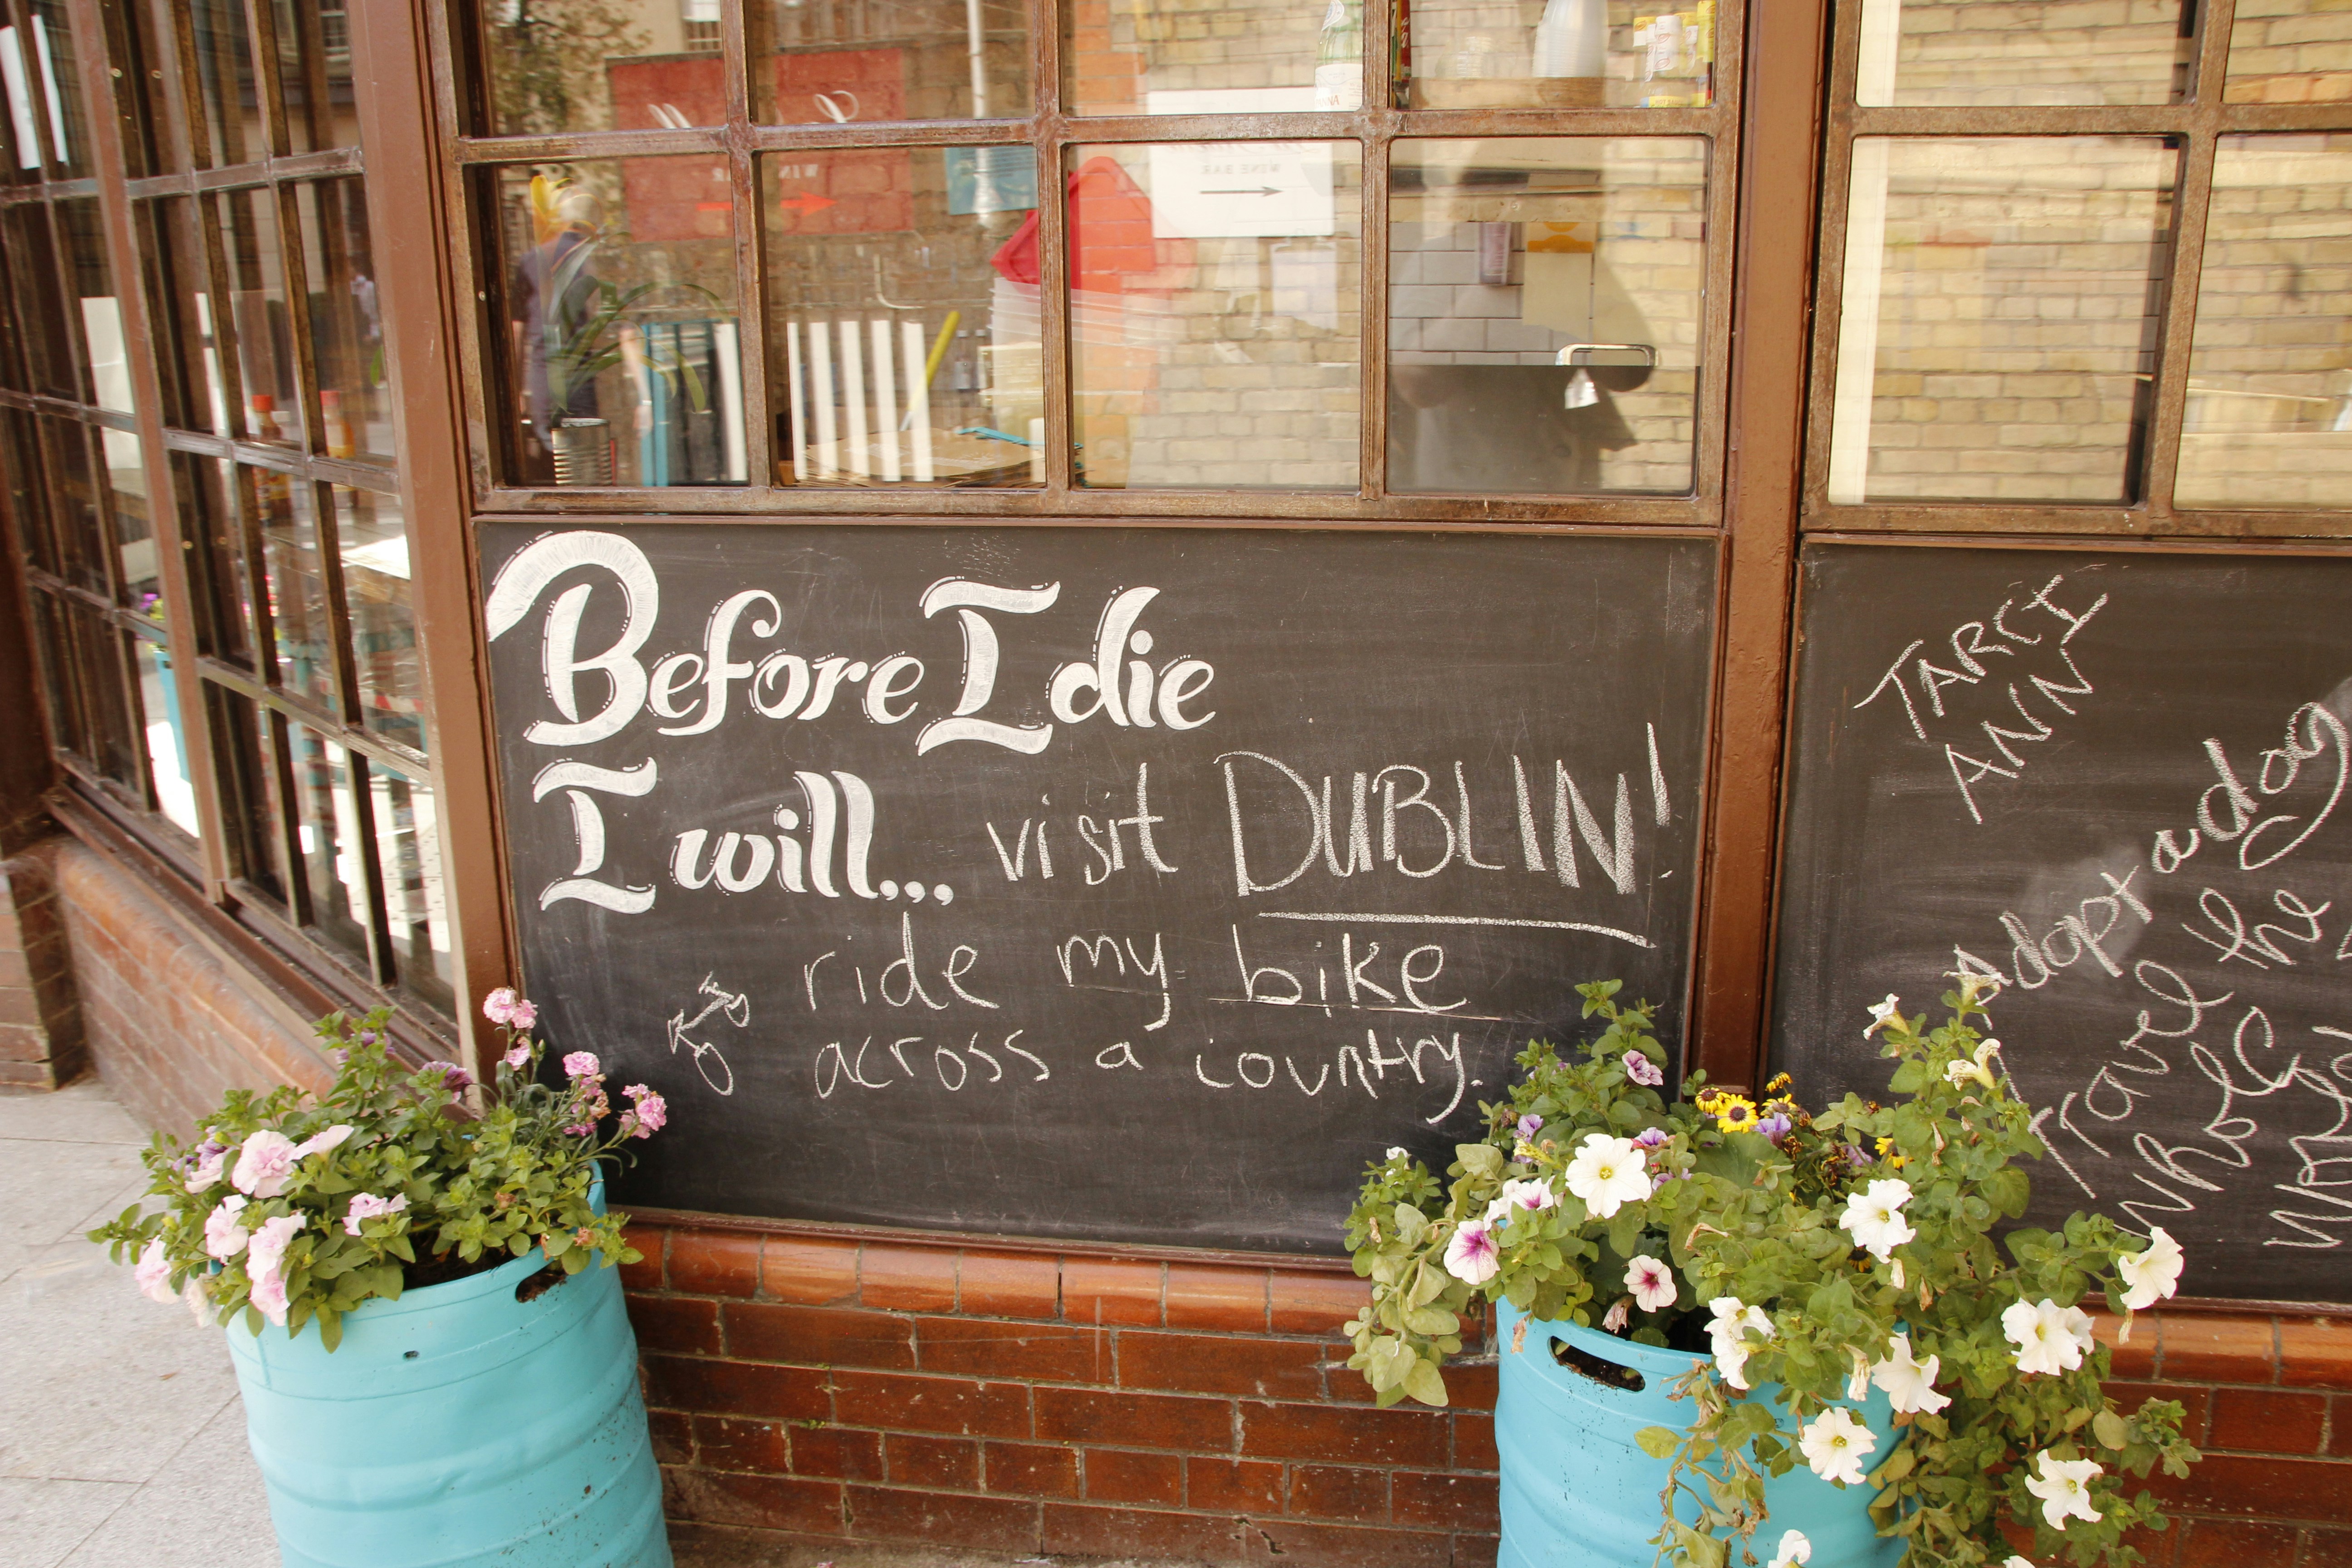 WINE BAR
Before I die
I will... visit DUBLIN!
ride my bike
across a country.
TARCI
ANN
Adopt a dog
Travel the
whole